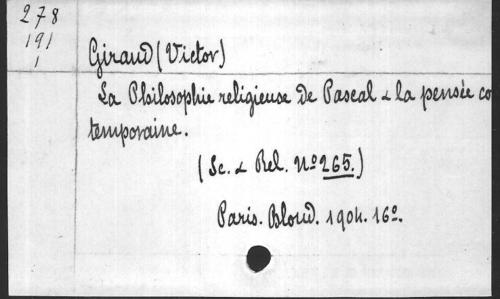 278
191
1
Giraud (Victor)
La Philosophie religieuse de Pascal & la pensée co
temporaine.
(Sc. & Rel. Nº 265.)
Paris. Bloud. 1904. 16º.